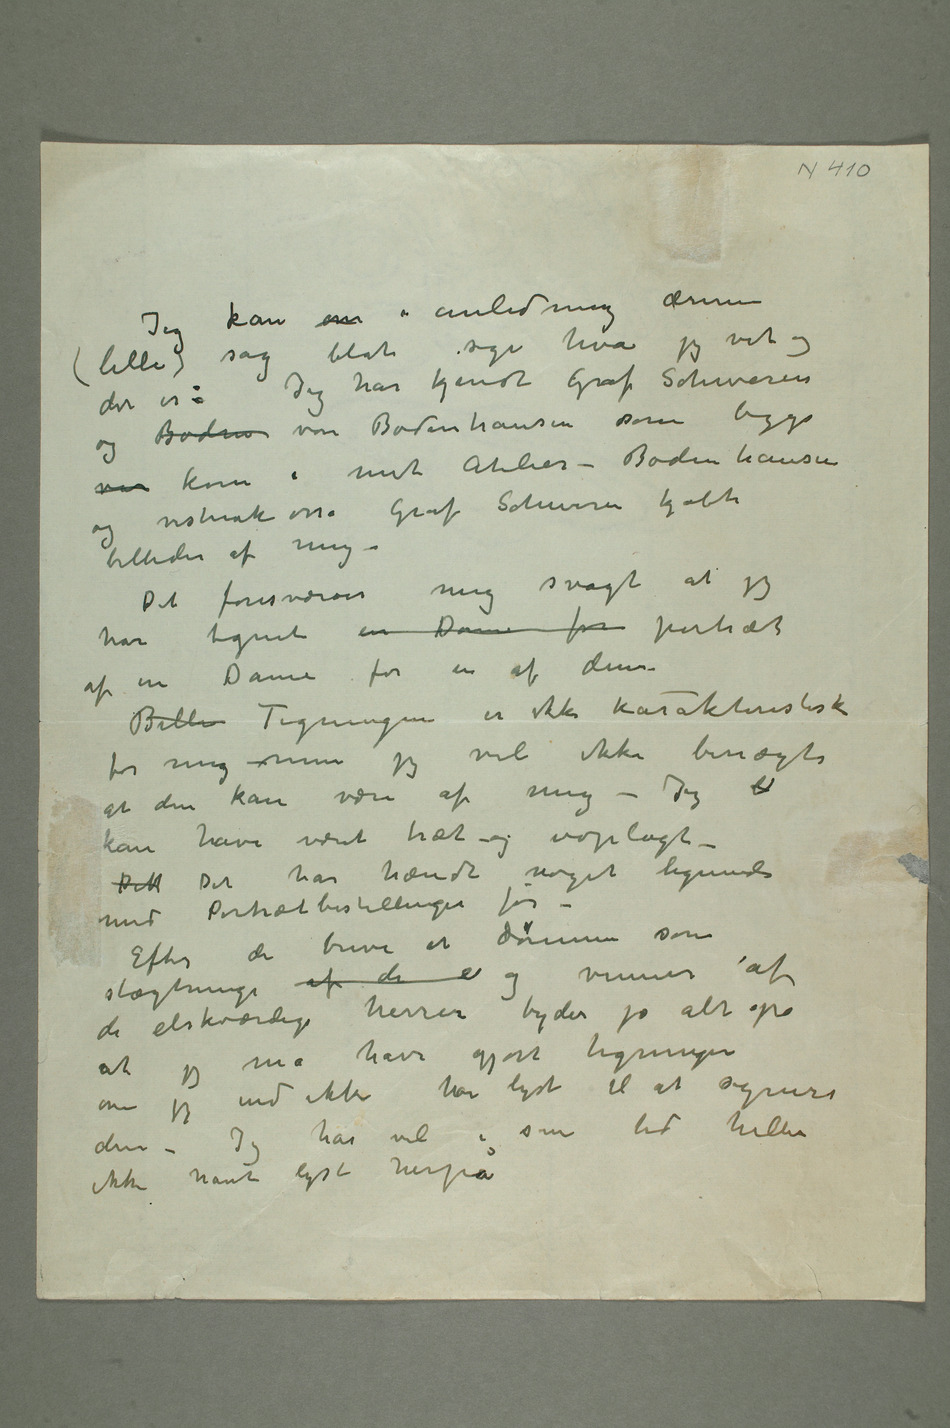 N 410
Jeg kan om i anledning denne
(lille) sag blot sige hva jeg vet og
det er: Jeg har kjendt Graf Schweren
og Boden von Bodenhausen som begge
var kom i mit Atelier – Bodenhausen
og vistnok også Graf Schweren kjøbte
billeder af mig –
Det foresvæver mig svagt at jeg
har tegnet en Dame for portræt
af en Dame for en af dem –
Bille Tegningen er ikke karakteristisk
for mig – men jeg vil ikke benægte
at den kan være af mig – Jeg
kan have været træt og uoplagt –
Dett Det har hændt noget lignende
med Portrætbestillinger før –
Efter de breve at dømme som
slægtninge af de e og venner af
de elskværdige herrer tyder jo alt på
at jeg må have gjort tegningen
om jeg end ikke har lyst til at signere
den – Jeg har vel i sin tid heller
ikke havt lyst herpå